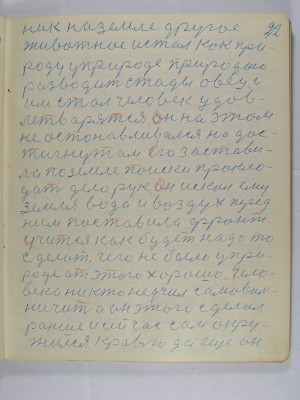 22
ник на земле другое
животное и стал как при-
роду у природе природою
разводит стады овец и
им стал человек удов-
летварятся он на этом
не останавливался на дос-
тигнутам его застави-
ла по земле поиски прокло-
дат дело рук Он искал ему
земля вода и воздух перед
ним поставила фронт
учится как будет надо то
сделат. чего не было у при-
роде от этого хорошо, чело-
века никто не учил самовол-
ничит а он этого сделал
раньше и сейчас сам окру-
жился Кравю да еще он